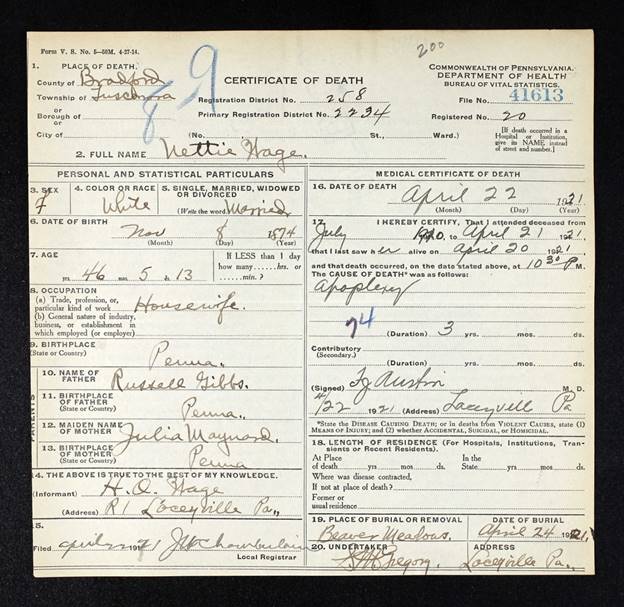 Form V. S. No. 5—50M. 4-27-14.
200
1. PLACE OF DEATH.
County of Bradford
Township of Tuscarora
or
Borough of
or
City of
89
CERTIFICATE OF DEATH
Registration District No. 258
Primary Registration District No. 2234
(No. St., Ward.)
COMMONWEALTH OF PENNSYLVANIA.
DEPARTMENT OF HEALTH
BUREAU OF VITAL STATISTICS.
File No. 41613
Registered No. 20
[If death occurred in a Hospital or Institution, give its NAME instead of street and number.]
2. FULL NAME Nettie Hage.
PERSONAL AND STATISTICAL PARTICULARS
3. SEX
F
4. COLOR OR RACE
White
5. SINGLE, MARRIED, WIDOWED OR DIVORCED
(Write the word) Married
6. DATE OF BIRTH
Nov 8 1874
(Month) (Day) (Year)
7. AGE
yrs. 46 mos. 5 ds. 13
If LESS than 1 day how many......hrs. or ......min.?
8. OCCUPATION
(a) Trade, profession, or particular kind of work Housewife.
(b) General nature of industry, business, or establishment in which employed (or employer)
9. BIRTHPLACE
(State or Country) Penna.
PARENTS
10. NAME OF FATHER Russell Gibbs.
11. BIRTHPLACE OF FATHER
(State or Country) Penna.
12. MAIDEN NAME OF MOTHER Julia Maynard.
13. BIRTHPLACE OF MOTHER
(State or Country) Penna
14. THE ABOVE IS TRUE TO THE BEST OF MY KNOWLEDGE.
(Informant) H. O. Hage
(Address) R1 Laceyville Pa.,
15.
Filed april 1921 Chamberlain
Local Registrar
MEDICAL CERTIFICATE OF DEATH
16. DATE OF DEATH
April 22 1921
(Month) (Day) (Year)
17. I HEREBY CERTIFY, That I attended deceased from
July 1920, to April 21 1921.
that I last saw her alive on April 20 1921
and that death occurred, on the date stated above, at 10 30 P M.
The CAUSE OF DEATH* was as follows:
Apoplexy
74
(Duration) 3 yrs. mos. ds.
Contributory
(Secondary.)
(Duration) yrs. mos. ds.
(Signed) Austin M. D.
4/22 1921 (Address) Laceyvill Pa
*State the DISEASE CAUSING DEATH; or in deaths from VIOLENT CAUSES, state (1) MEANS OF INJURY; and (2) whether ACCIDENTAL, SUICIDAL, or HOMICIDAL.
18. LENGTH OF RESIDENCE (For Hospitals, Institutions, Transients or Recent Residents).
At Place of death yrs. mos. ds. In the State yrs. mos. ds.
Where was disease contracted,
if not at place of death?
Former or
usual residence
19. PLACE OF BURIAL OR REMOVAL
Beaver Meadows.
DATE OF BURIAL
April 24 1921.
20. UNDERTAKER
Gregory.
ADDRESS
Laceyville Pa.